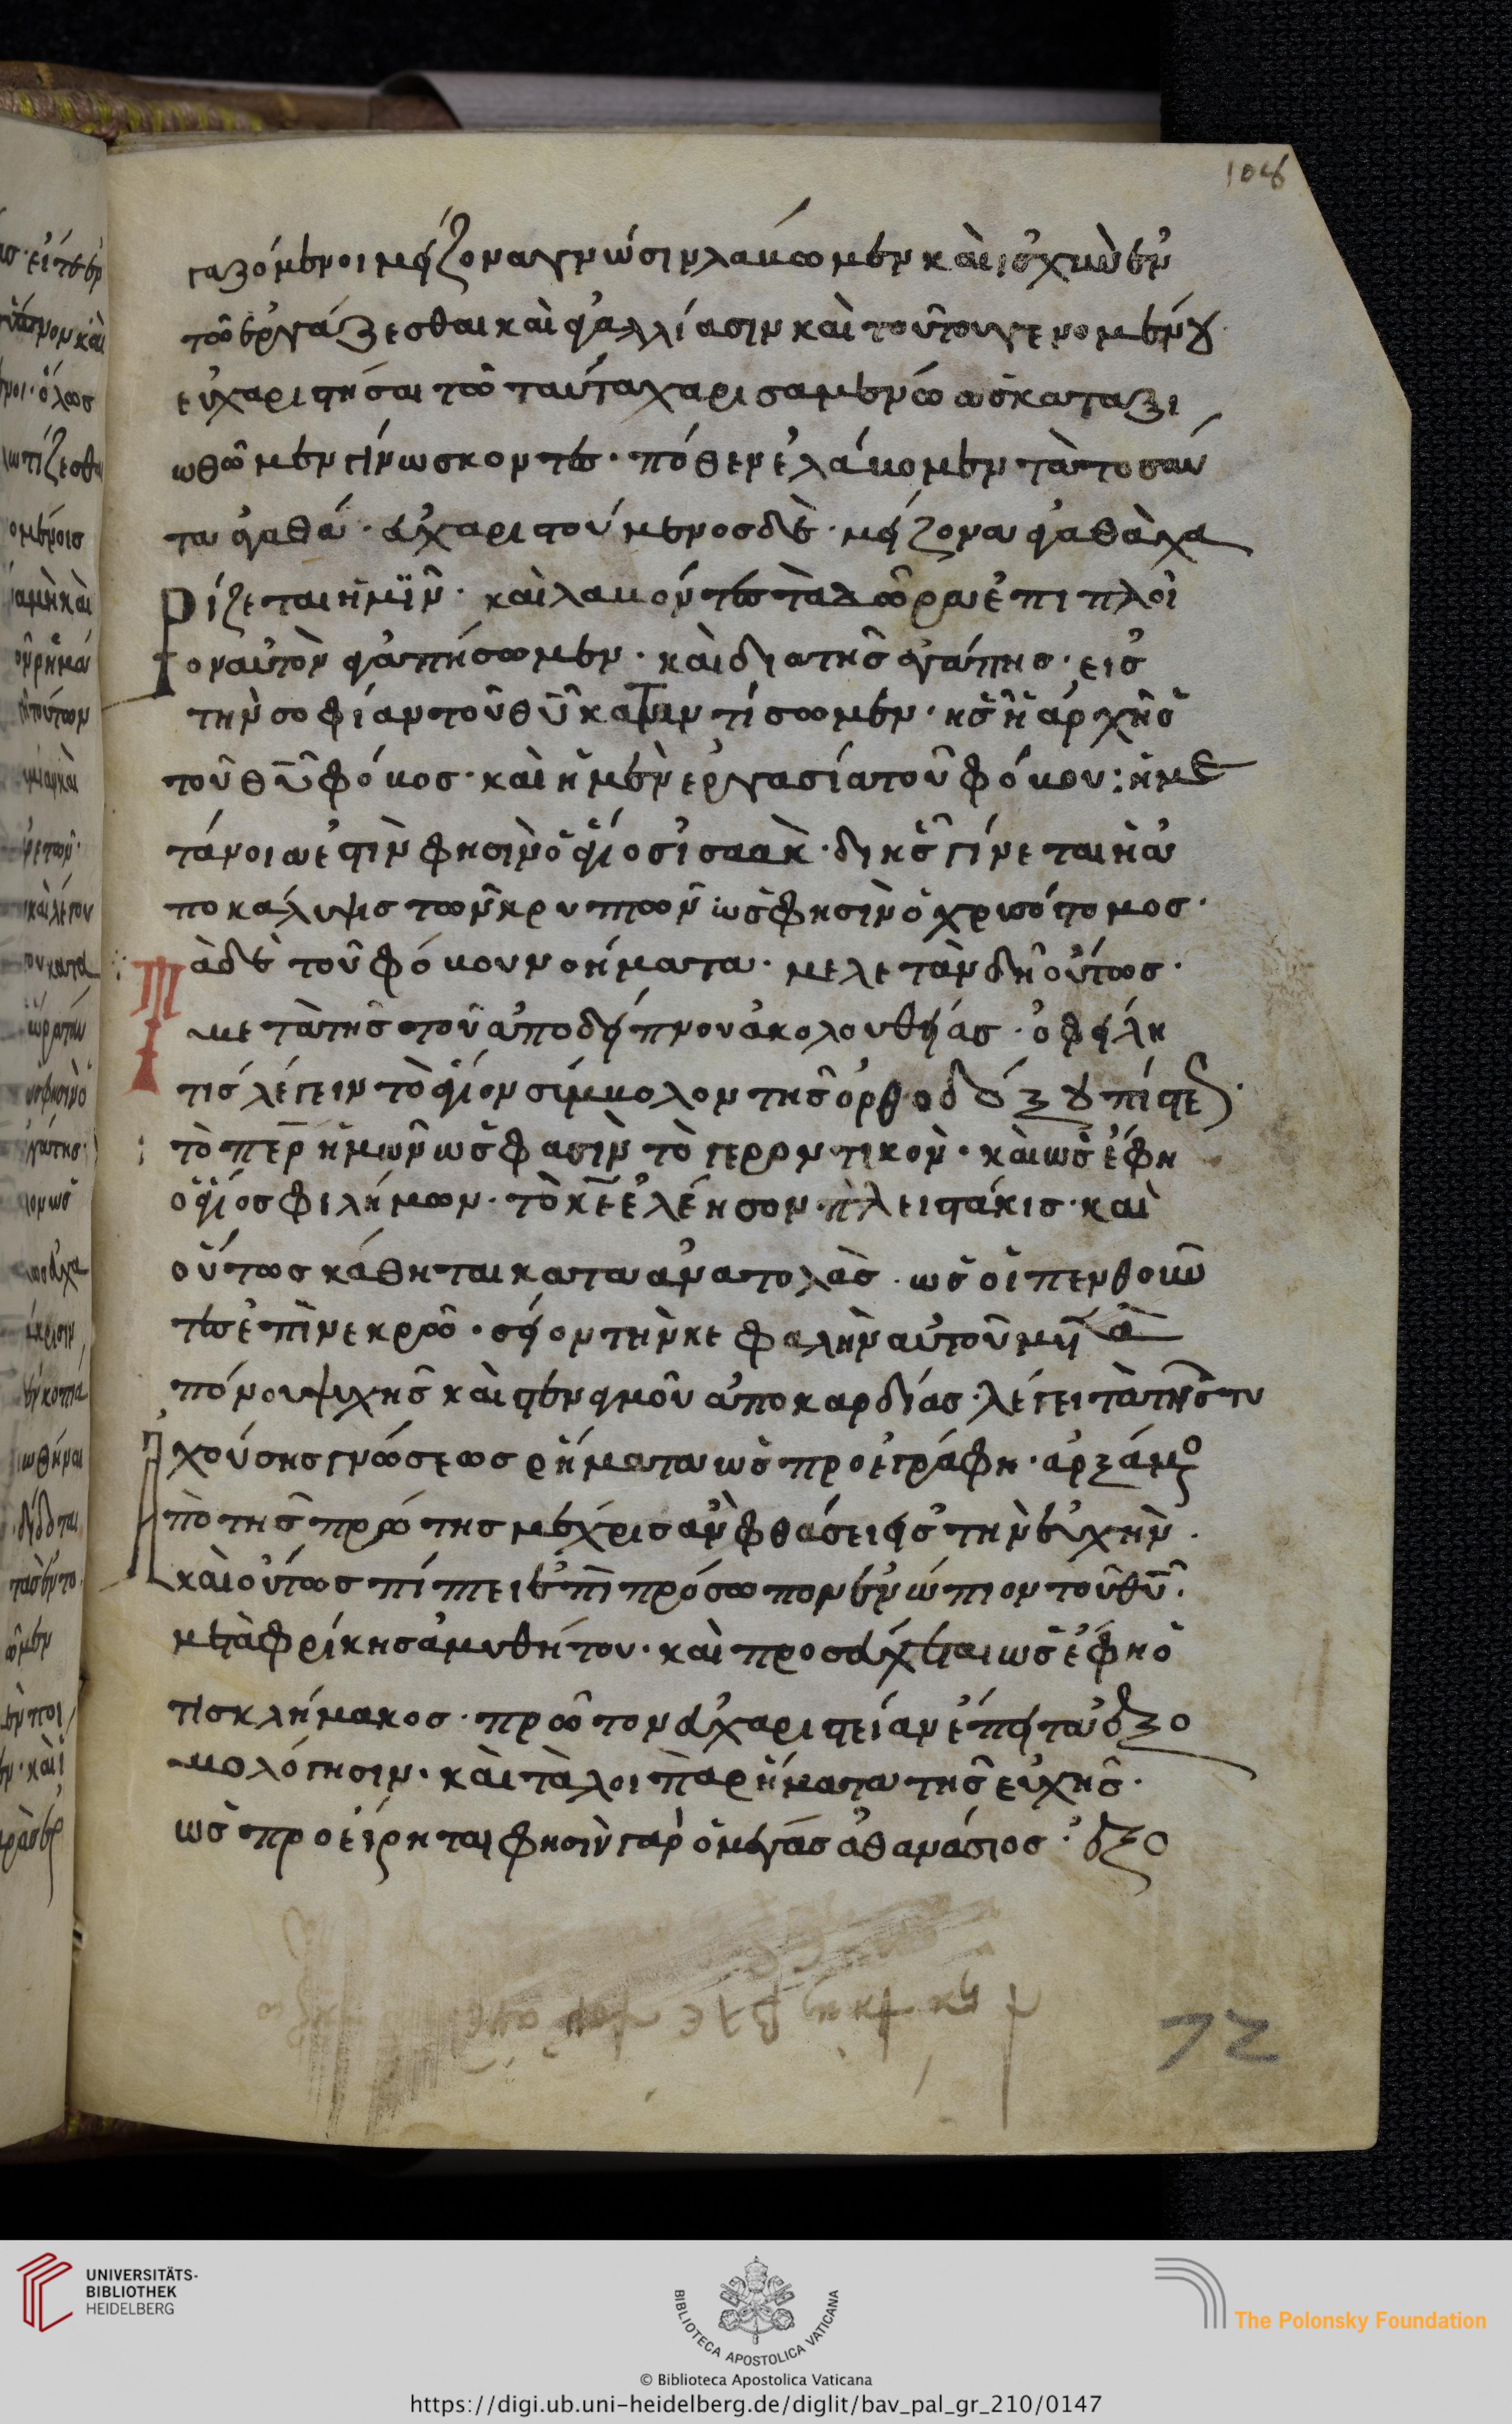 108
γαζόμενοι μείζονα γνῶσιν λάβωμεν καὶ ἰσχὺν ἐν
τῶ ἐργάζεσθαι καὶ ἀγαλλίασιν καὶ τούτου γενομένου
εὐχαριστῆσαι τῶ ταῦτα χαρισαμένω ὡς καταξι
ωθῶμεν γινώσκοντες· πόθεν ἐλάβομεν τὰ τοσαῦ
τα ἀγαθά· εὐχαριστούμενος δὲ· μείζονα ἀγαθὰ χα
ρίζεται ἡμῖν· καὶ λαβόντες τὰ δῶρα ἐπὶ πλεῖ
ον αὐτὸν ἀγαπήσωμεν· καὶ διὰ τῆς ἀγάπης· εἰς
τὴν σοφίαν τοῦ θῦ καταντήσωμεν· ἧς ἡ ἀρχῆς
τοῦ θῦ φόβος· καὶ ἡ μὲν ἐργασία τοῦ φόβου: ἡ με
τάνοια ἐστὶν φησὶν ὁ ἅγιος ἰσαὰκ· δι ἧς γίνεται ἡ ἀ
ποκάλυψις τῶν κρυπτῶν ὡς φησὶν ὁ χρισόστομος·
Τὰ δὲ τοῦ φόβου νοήματα· μελετᾶν δεῖ οὕτως·
μετὰ τῆς τοῦ ἀποδείπνου ἀκολουθείας· ὀφείλη
τις λέγειν τὸ ἅγιον σίμβολον τῆς ὀρθοδόξου πίστεως·
τὸ πὲρ ἡμῶν ὡς φασὶν τὸ γεροντικὸν· καὶ ὡς ἔφη
ὁ ἅγιος φιλήμων· τὸ κε ἐλέησον πλειστάκις· καὶ
οὕτως κάθηται κατὰ ἀνατολὰς· ὡς οἱ πενθοῦν
τες ἐπὶ νεκρῶ· σείον τὴν κεφαλὴν αὐτοῦ μετὰ
πόνου ψυχῆς καὶ στεναγμοῦ ἀπὸ καρδίας· λέγει τὰ τῆς τυ
χούσης γνώσεως ῥήματα ὡς προεγράφη· ἀρξάμενος
ἀπὸ τῆς πρώτης μέχρις ἂν φθάσει εἰς τὴν εὐχὴν·
καὶ οὕτως πίπτει ἐπὶ πρόσωπον ἐνώπιον τοῦ θῦ·
μετὰ φρίκης ἀμυθήτου· καὶ προσεύχεται ὡς ἔφη ὁ
τῆς κλήμακος· πρῶτον εὐχαριστείαν ἔπειτα ἐξο
μολόγησιν· καὶ τὰ λοιπὰ ῥήματα τῆς εὐχῆς·
ὡς προείρηται φησὶν γὰρ ὁ μέγας ἀθανάσιος· ἐξο
72
UNIVERSITÄTS-
BIBLIOTHEK
HEIDELBERG
BIBLIOTECA APOSTOLICA VATICANA
The Polonsky Foundation
© Biblioteca Apostolica Vaticana
https://digi.ub.uni-heidelberg.de/diglit/bav_pal_gr_210/0147